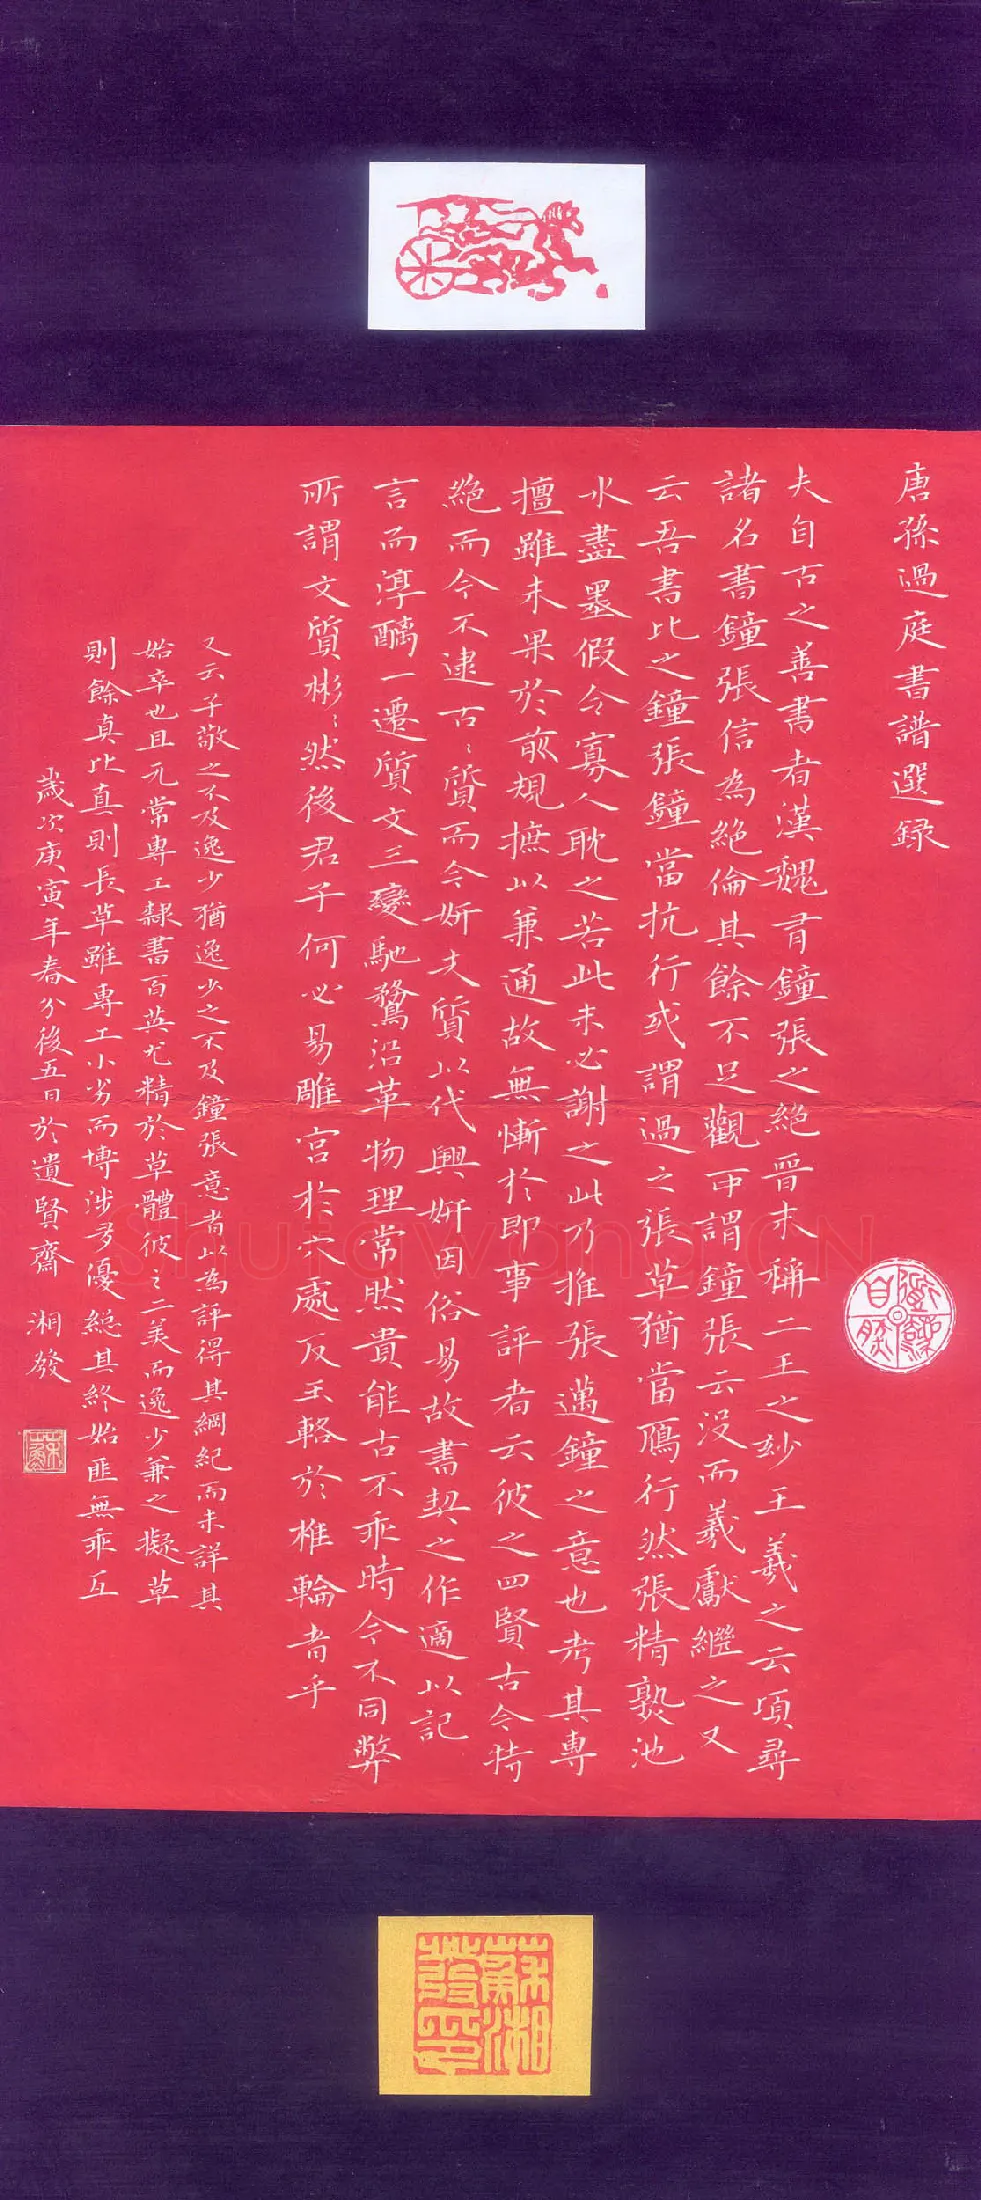 唐孫過庭書譜選録
夫自古之善書者漢魏有鐘張之絶晋末稱二王之妙王羲之云項尋
諸名書鐘張信為絶倫其餘不足觀可謂鐘張云没而羲獻繼之又
云吾書比之鐘張鐘當抗行或謂過之張草猶當鴈行然張精熟池
水盡墨假令寡人耽之若此未必謝之此乃推張邁鐘之意也考其專
擅雖未果於前規摭以兼通故無慚於即事評者云彼之四賢古今特
絶而今不逮古〻質而今妍夫質以代興妍因俗易故書契之作適以記
言而淳醨一遷質文三變馳騖沿革物理常然貴能古不乖時今不同弊
所謂文質彬〻然後君子何必易雕宫於穴處反玉輅於椎輪者乎
又云子敬之不及逸少猶逸少之不及鐘張意者以為評得其綱紀而未詳其
始卒也且元常專工隸書百英尤精於草體彼之二美而逸少兼之擬草
則餘真比真則長草雖專工小劣而博涉多優緫其終始匪無乖互
歲次庚寅年春分後五日於遺賢齋 湘發
蘇湘發印
Shufawang.CN